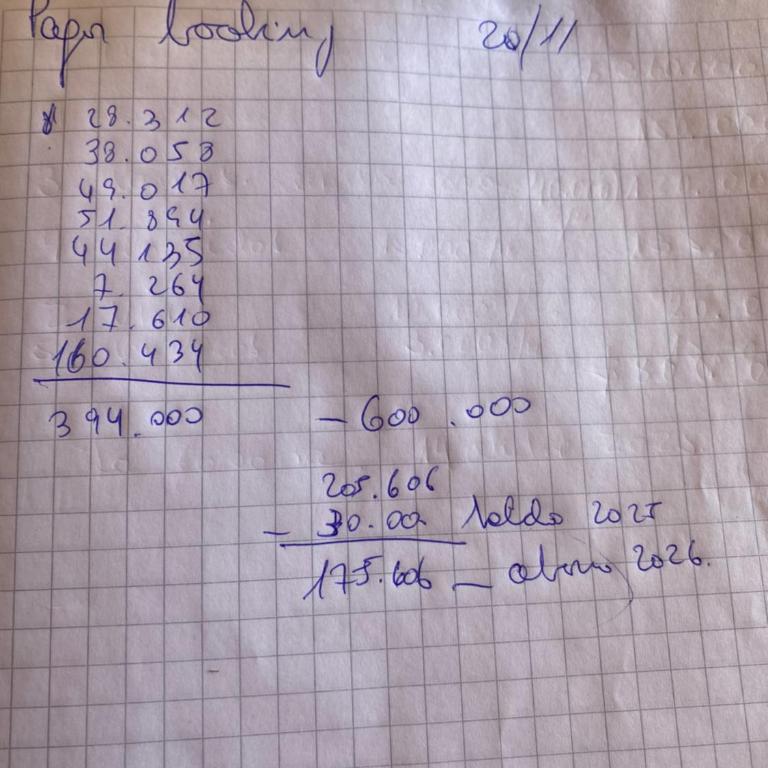 booking 20/11
28.312
38.058
49.017
51.894
44 135
7. 264
17.610
160.434
394.000 - 600.000
205.606
- 30.00 saldo 2025
175.606 - abono 2026.